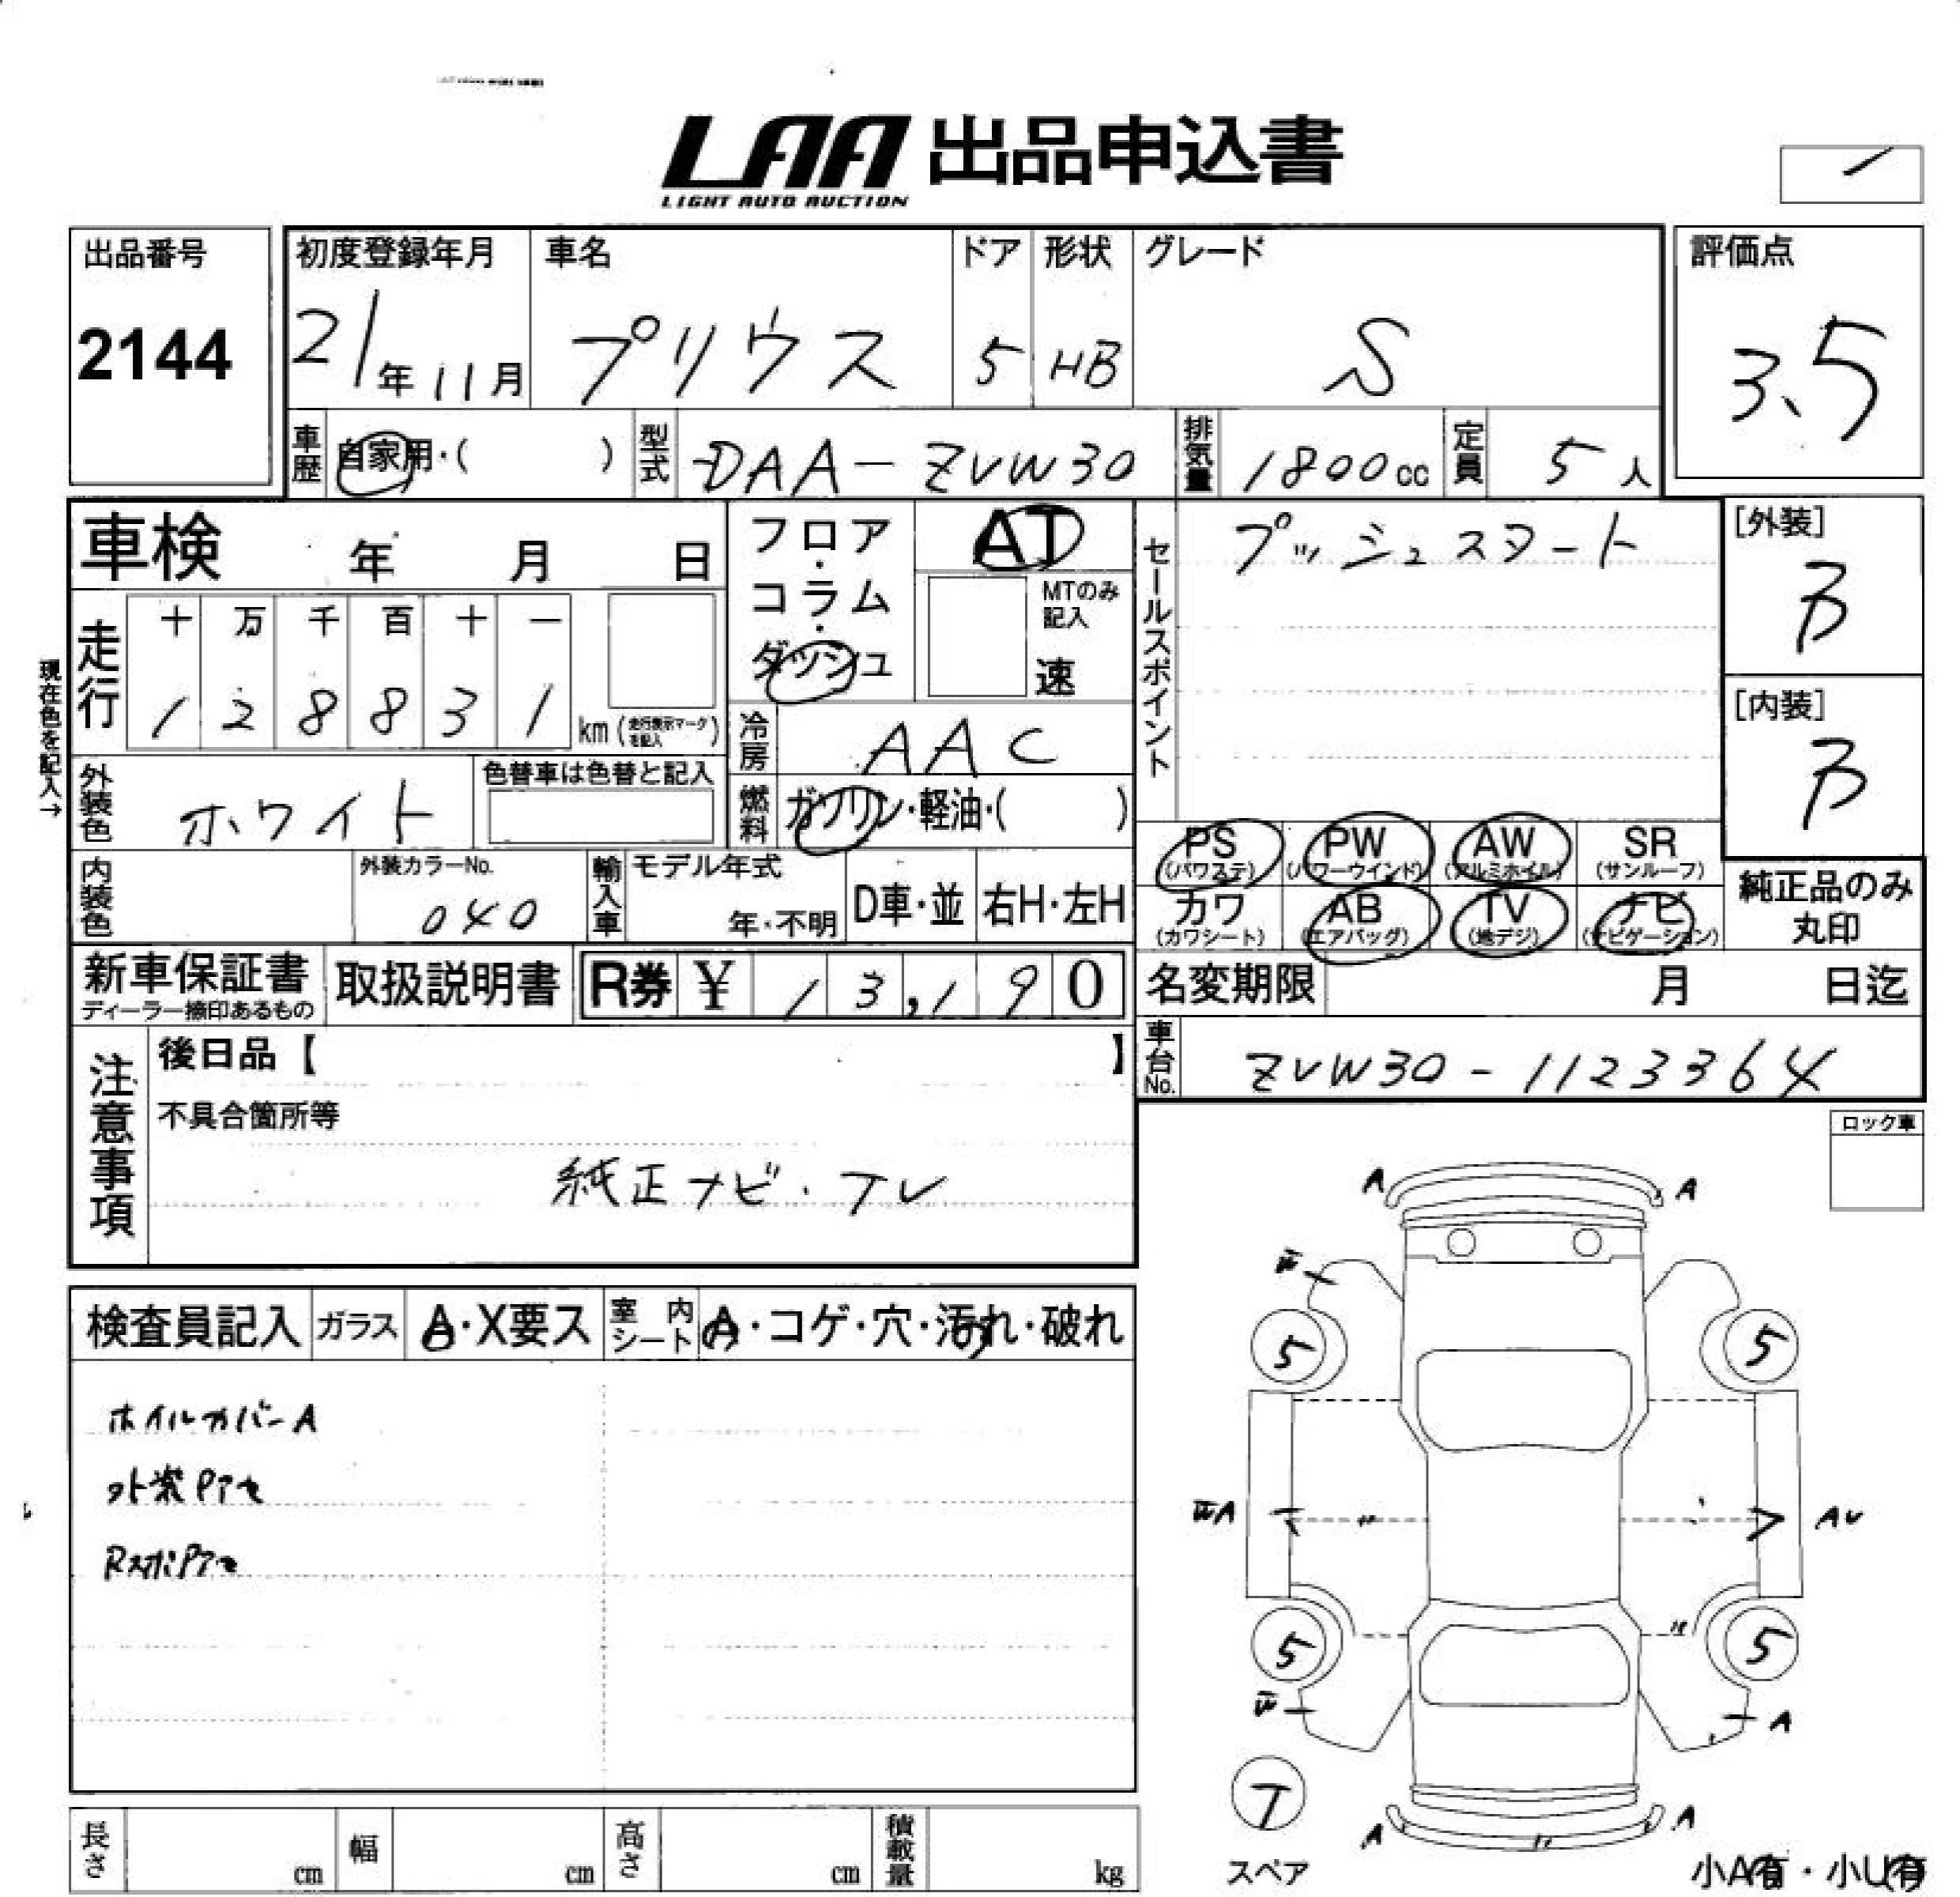 LAA 出品申込書
LIGHT AUTO AUCTION
出品番号
2144
初度登録年月
21年11月
車名
プリウス
ドア
5
形状
HB
グレード
S
評価点
3.5
車歴 自家用・( )
型式 DAA-ZVW30
排気量 1800cc
定員 5人
車検 年 月 日
フロア・コラム・ダッシュ
AT
MTのみ記入
速
セールスポイント
プッシュスタート
[外装]
B
[内装]
B
現在色を記入→
走行
十 万 千 百 十 一
1 2 8 8 3 1 km (走行表示マークを記入)
冷房 AAC
外装色 ホワイト
色替車は色替と記入
燃料 ガソリン・軽油・( )
内装色
外装カラーNo.
040
輸入車
モデル年式
年・不明
D車・並
右H・左H
PS (パワステ)
PW (パワーウインド)
AW (アルミホイル)
SR (サンルーフ)
カワ (カワシート)
AB (エアバッグ)
TV (地デジ)
ナビ (ナビゲーション)
純正品のみ
丸印
新車保証書
ディーラー捺印あるもの
取扱説明書
R券 ¥ 13,190
名変期限 月 日迄
車台No. ZVW30-1123364
注意事項
後日品【 】
不具合箇所等
純正ナビ・TV
ロック車
検査員記入
ガラス A・X要ス
室内シート A・コゲ・穴・汚れ・破れ
ホイルカバーA
外装Pアセ
RスポPアセ
A A
5 5
A
5 5
A
A A
T
スペア
小A有・小U有
長さ cm
幅 cm
高さ cm
積載量 kg